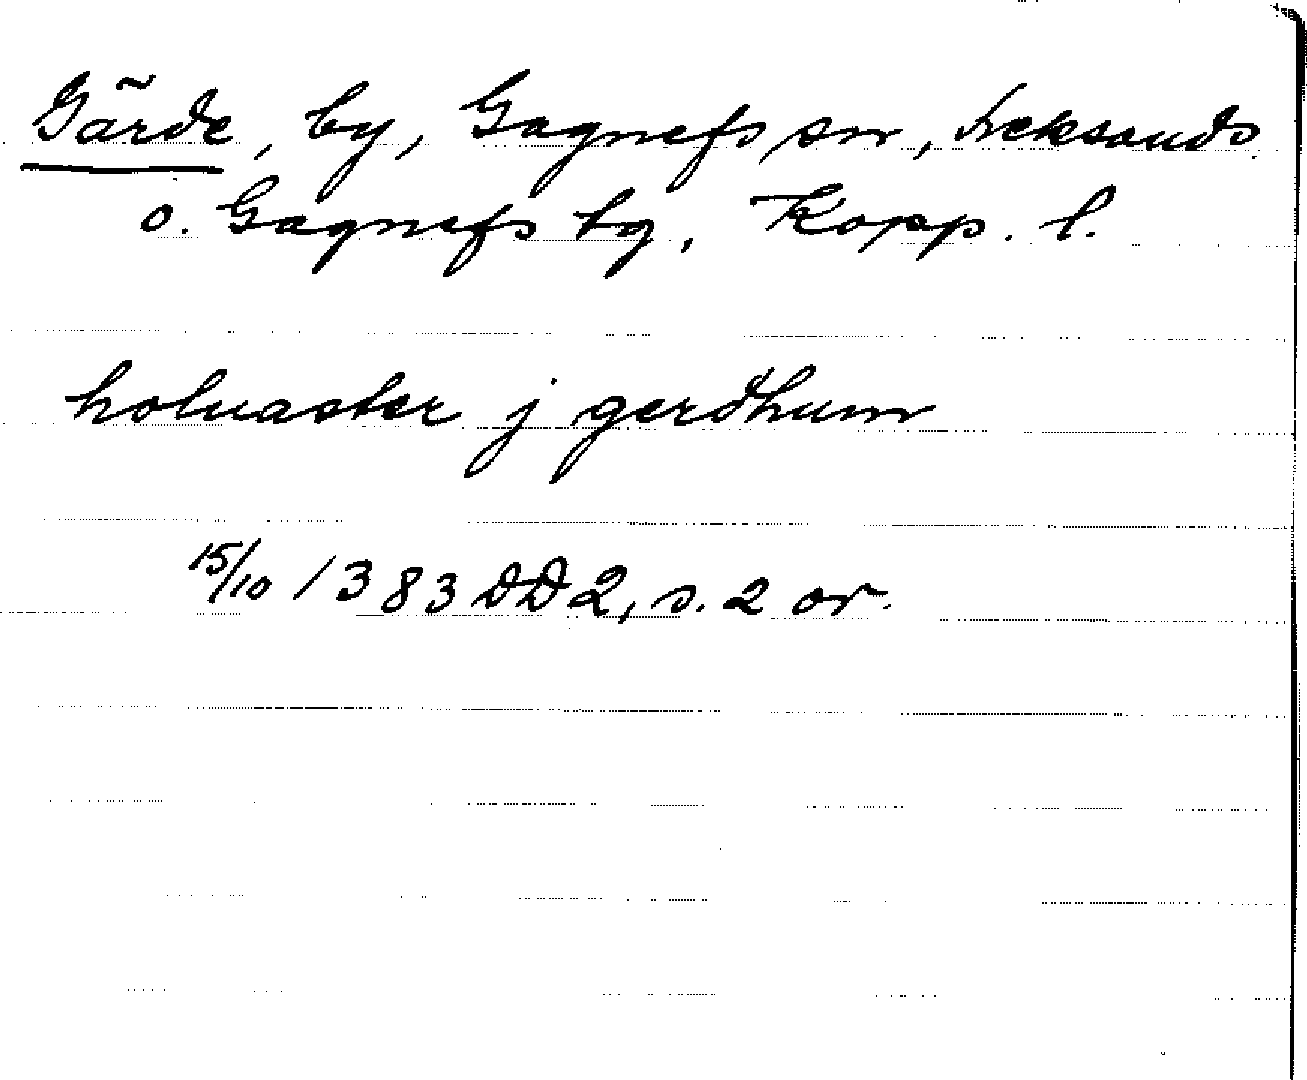 Gärde, by, Gagnefs sn, Leksands
o. Gagnefs tg, Kopp. l.
holuaster j gerdhum
15/10 1383 DD 2, s. 2 or.